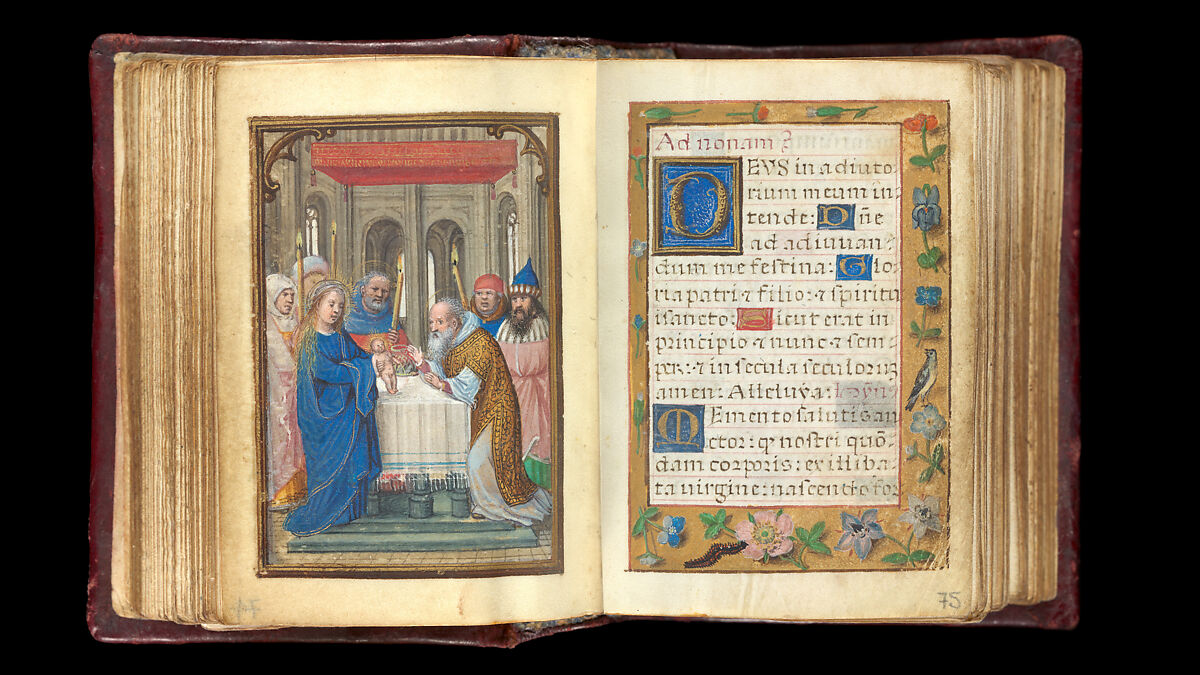 Ad nonam
DEVS in adiuto
rium meum in
tende: Dñe
ad adiuuan
dum me festina: Glo
ria patri ⁊ filio: ⁊ spiritu
i sancto: Sicut erat in
principio ⁊ nunc ⁊ sem
per: ⁊ in secula seculorum
amen: Alleluya: hymn
Memento salutis au
ctor: ꝙ nostri quō
dam corporis: ex illiba
ta virgine: nascendo for
75